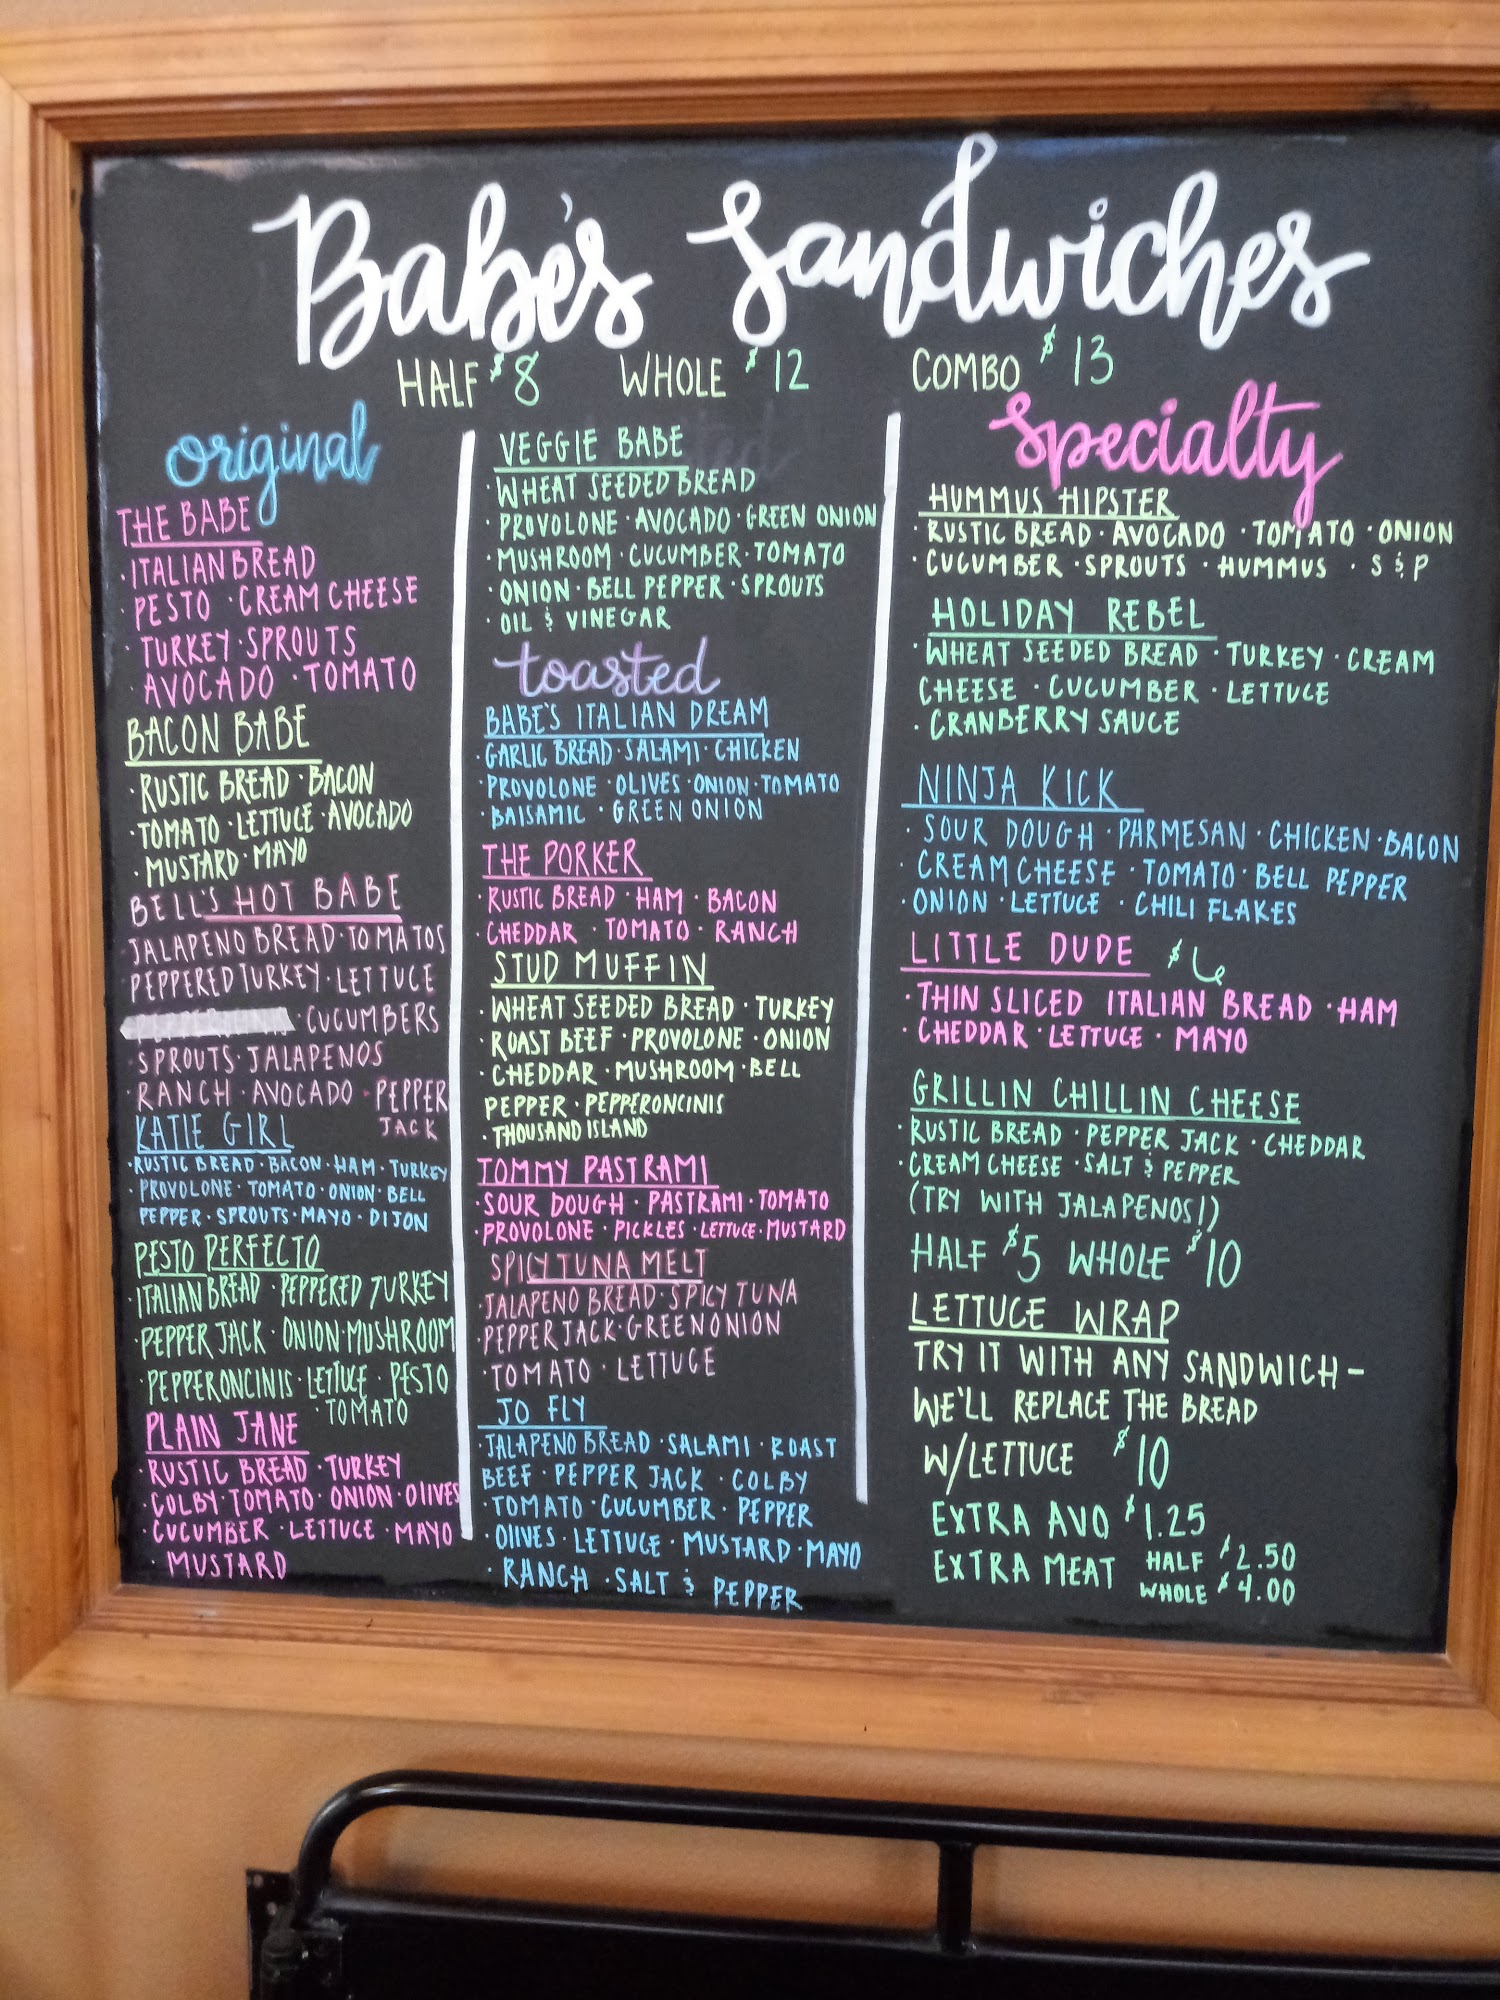 Babe's Sandwiches
HALF $8 WHOLE $12 COMBO $13
original
THE BABE
·ITALIAN BREAD
·PESTO ·CREAM CHEESE
·TURKEY·SPROUTS
·AVOCADO ·TOMATO
BACON BABE
·RUSTIC BREAD·BACON
·TOMATO·LETTUCE·AVOCADO
·MUSTARD·MAYO
BELL'S HOT BABE
JALAPENO BREAD·TOMATOS
PEPPERED TURKEY·LETTUCE
·CUCUMBERS
·SPROUTS·JALAPENOS
·RANCH·AVOCADO·PEPPER
JACK
KATIE GIRL
·RUSTIC BREAD·BACON·HAM·TURKEY
·PROVOLONE·TOMATO·ONION·BELL
PEPPER·SPROUTS·MAYO·DIJON
PESTO PERFECTO
·ITALIAN BREAD·PEPPERED TURKEY
·PEPPER JACK·ONION·MUSHROOM
·PEPPERONCINIS·LETTUCE·PESTO
·TOMATO
PLAIN JANE
·RUSTIC BREAD·TURKEY
·COLBY·TOMATO·ONION·OLIVES
·CUCUMBER·LETTUCE·MAYO
·MUSTARD
VEGGIE BABE
·WHEAT SEEDED BREAD
·PROVOLONE·AVOCADO·GREEN ONION
·MUSHROOM·CUCUMBER·TOMATO
·ONION·BELL PEPPER·SPROUTS
·OIL & VINEGAR
toasted
BABE'S ITALIAN DREAM
·GARLIC BREAD·SALAMI·CHICKEN
·PROVOLONE·OLIVES·ONION·TOMATO
·BALSAMIC·GREEN ONION
THE PORKER
·RUSTIC BREAD·HAM·BACON
·CHEDDAR·TOMATO·RANCH
STUD MUFFIN
·WHEAT SEEDED BREAD·TURKEY
·ROAST BEEF·PROVOLONE·ONION
·CHEDDAR·MUSHROOM·BELL
PEPPER·PEPPERONCINIS
·THOUSAND ISLAND
TOMMY PASTRAMI
·SOUR DOUGH·PASTRAMI·TOMATO
·PROVOLONE·PICKLES·LETTUCE·MUSTARD
SPICY TUNA MELT
·JALAPENO BREAD·SPICY TUNA
·PEPPER JACK·GREEN ONION
·TOMATO·LETTUCE
JO FLY
·JALAPENO BREAD·SALAMI·ROAST
BEEF·PEPPER JACK·COLBY
·TOMATO·CUCUMBER·PEPPER
·OLIVES·LETTUCE·MUSTARD·MAYO
·RANCH·SALT & PEPPER
specialty
HUMMUS HIPSTER
·RUSTIC BREAD·AVOCADO·TOMATO·ONION
·CUCUMBER·SPROUTS·HUMMUS·S & P
HOLIDAY REBEL
·WHEAT SEEDED BREAD·TURKEY·CREAM
CHEESE·CUCUMBER·LETTUCE
·CRANBERRY SAUCE
NINJA KICK
·SOUR DOUGH·PARMESAN·CHICKEN·BACON
·CREAM CHEESE·TOMATO·BELL PEPPER
·ONION·LETTUCE·CHILI FLAKES
LITTLE DUDE $6
·THIN SLICED ITALIAN BREAD·HAM
·CHEDDAR·LETTUCE·MAYO
GRILLIN CHILLIN CHEESE
·RUSTIC BREAD·PEPPER JACK·CHEDDAR
·CREAM CHEESE·SALT & PEPPER
(TRY WITH JALAPENOS!)
HALF $5 WHOLE $10
LETTUCE WRAP
TRY IT WITH ANY SANDWICH-
WE'LL REPLACE THE BREAD
W/LETTUCE $10
EXTRA AVO $1.25
EXTRA MEAT HALF $2.50
WHOLE $4.00